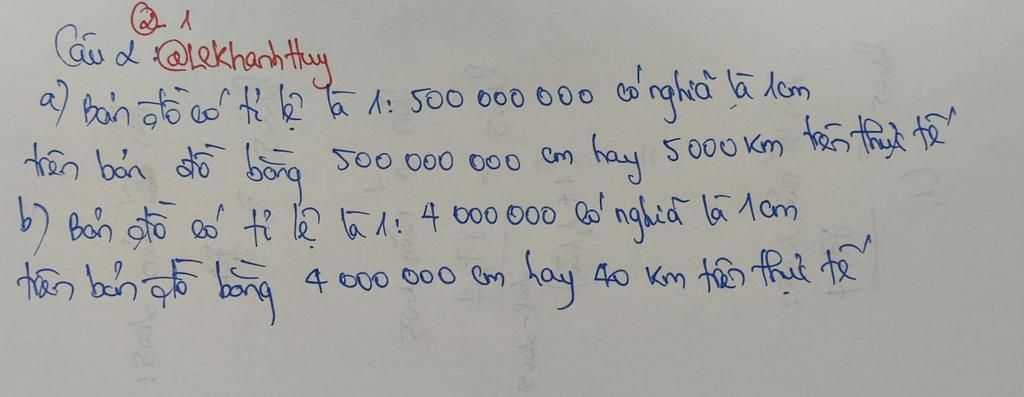 ② 1
Câu 2 : @LeKhanhHuy
a) Bản đồ có tỉ lệ là 1: 500 000 000 có nghĩa là 1cm
trên bản đồ bằng 500 000 000 cm hay 5000 km trên thực tế
b) Bản đồ có tỉ lệ là 1: 4 000 000 có nghĩa là 1cm
trên bản đồ bằng 4 000 000 cm hay 40 km trên thực tế